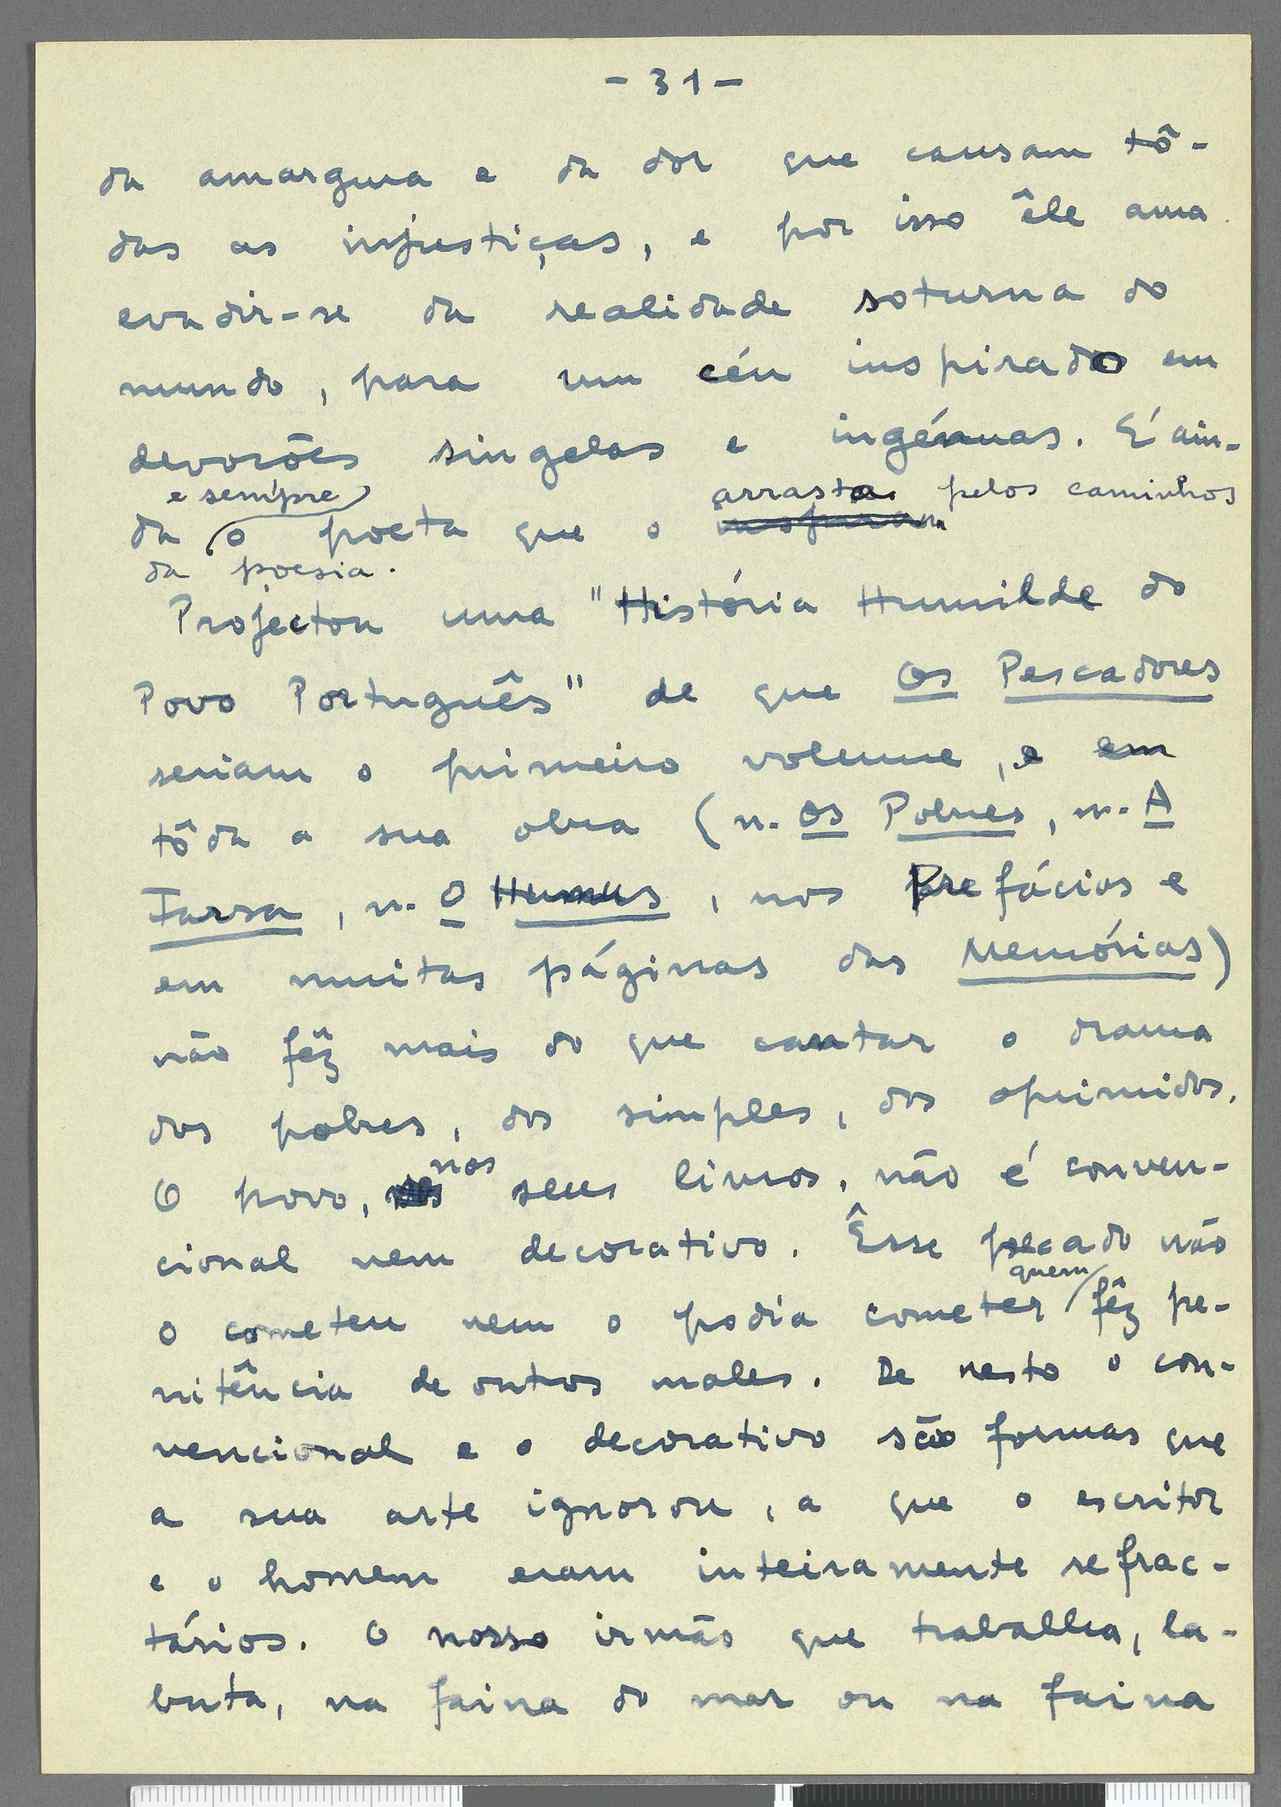 - 31 -
da amargura e da dor que causam tô-
das as injustiças, e por isso êle ama
evadir-se da realidade soturna do
mundo, para um céu inspirado em
devoções singelas e ingénuas. É ain-
e sempre arrasta pelos caminhos
da o poeta que o inspiram
da poesia.
Projectou uma "História Humilde do
Povo Português" de que Os Pescadores
seriam o primeiro volume, e em
tôda a sua obra (n. Os Pobres, n. A
Farsa, n. O Humus, nos Prefácios e
em muitas páginas das Memórias)
não fêz mais do que cantar o drama
dos pobres, dos simples, dos oprimidos.
nos
O povo, seus livros, não é conven-
cional nem decorativo. Êsse pecado não
quem
o cometeu nem o podia cometer fêz pe-
nitência de outros males. De resto o con-
vencional e o decorativo são formas que
a sua arte ignorou, a que o escritor
e o homem eram inteiramente refrac-
tários. O nosso irmão que trabalha, la-
buta, na faina do mar ou na faina